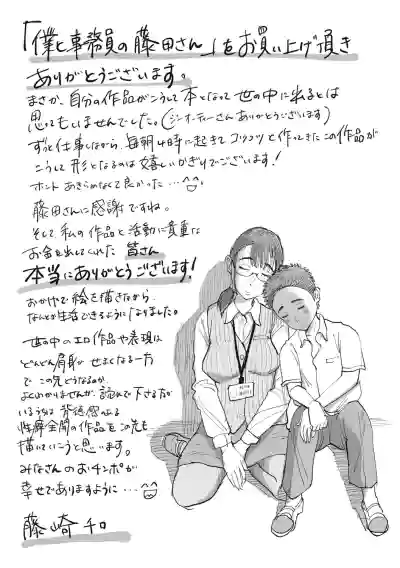 「僕と事務員の藤田さん」をお買い上げ頂き
ありがとうございます。
まさか、自分の作品がこうして本となって世の中に出るとは
思ってもいませんでした。(ジーオーティーさんありがとうございます)
ずっと仕事しながら、毎朝4時に起きてコツコツと作ってきたこの作品が
こうして形となるのは嬉しいかぎりでございます!
ホントあきらめなくて良かった…
藤田さんに感謝ですね。
そして私の作品と活動に貴重な
お金を出してくれた皆さん
本当にありがとうございます!
おかげで絵を描きながら
なんとか生活できるようになりました。
世の中のエロ作品や表現は
どんどん肩身がせまくなる一方
でこの先どうなるのか、
よくわかりませんが、読んで下さる方が
いるうちは背徳感のある
性癖全開の作品をこの先も
描いていこうと思います。
みなさんのおチンポが
幸せでありますように…
藤崎チロ